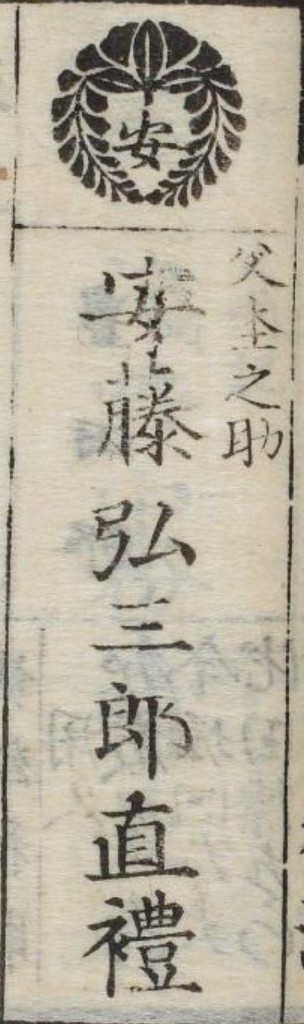 安
父圭之助
安藤弘三郎直禮